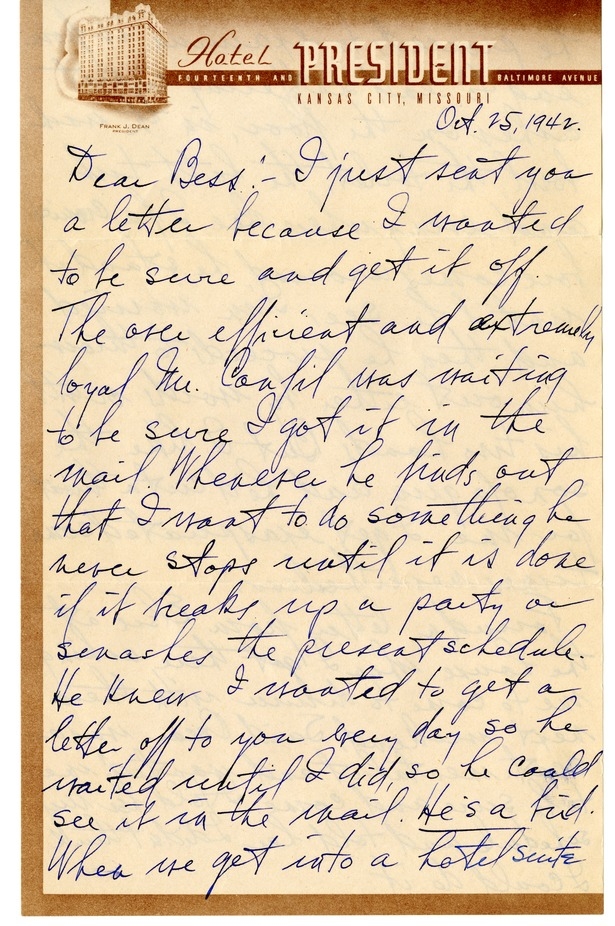 Hotel PRESIDENT
FOURTEENTH AND BALTIMORE AVENUE
KANSAS CITY, MISSOURI
FRANK J. DEAN
PRESIDENT
Oct. 25, 1942.
Dear Bess:- I just sent you
a letter because I wanted
to be sure and get it off.
The over efficient and extremely
loyal Mr. Canfil was waiting
to be sure I got it in the
mail. Whenever he finds out
that I want to do something he
never stops until it is done
if it breaks up a party or
smashes the present schedule.
He knew I wanted to get a
letter off to you every day so he
waited until I did, so he could
see it in the mail. He's a bird.
When we get into a hotel suite